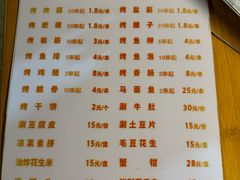 烤肉筋 20串起 1.8元/串 烤盐筋 20串起 1.8元/串
烤肥瘦 20串起 烤腰子 20串起 1.8元/串
烤板筋 10串起 3元/串 烤鱼柳 5串起 4元/串
烤鱼排 5串起 4元/串 烤鱼泡 5串起 4元/串
烤鸡翅 2串起 8元/串 烤香肠 2串起 8元/串
烤脆骨 10串起 4元/串 马面鱼 2条起 25元/条
烤干饼 2元/个 涮牛肚 30元/份
涮豆腐皮 15元/份 涮土豆片 15元/份
凉菜素拼 15元/盘 毛豆花生 15元/盘
油炸花生米 15元/盘 蟹钳 28元/盘